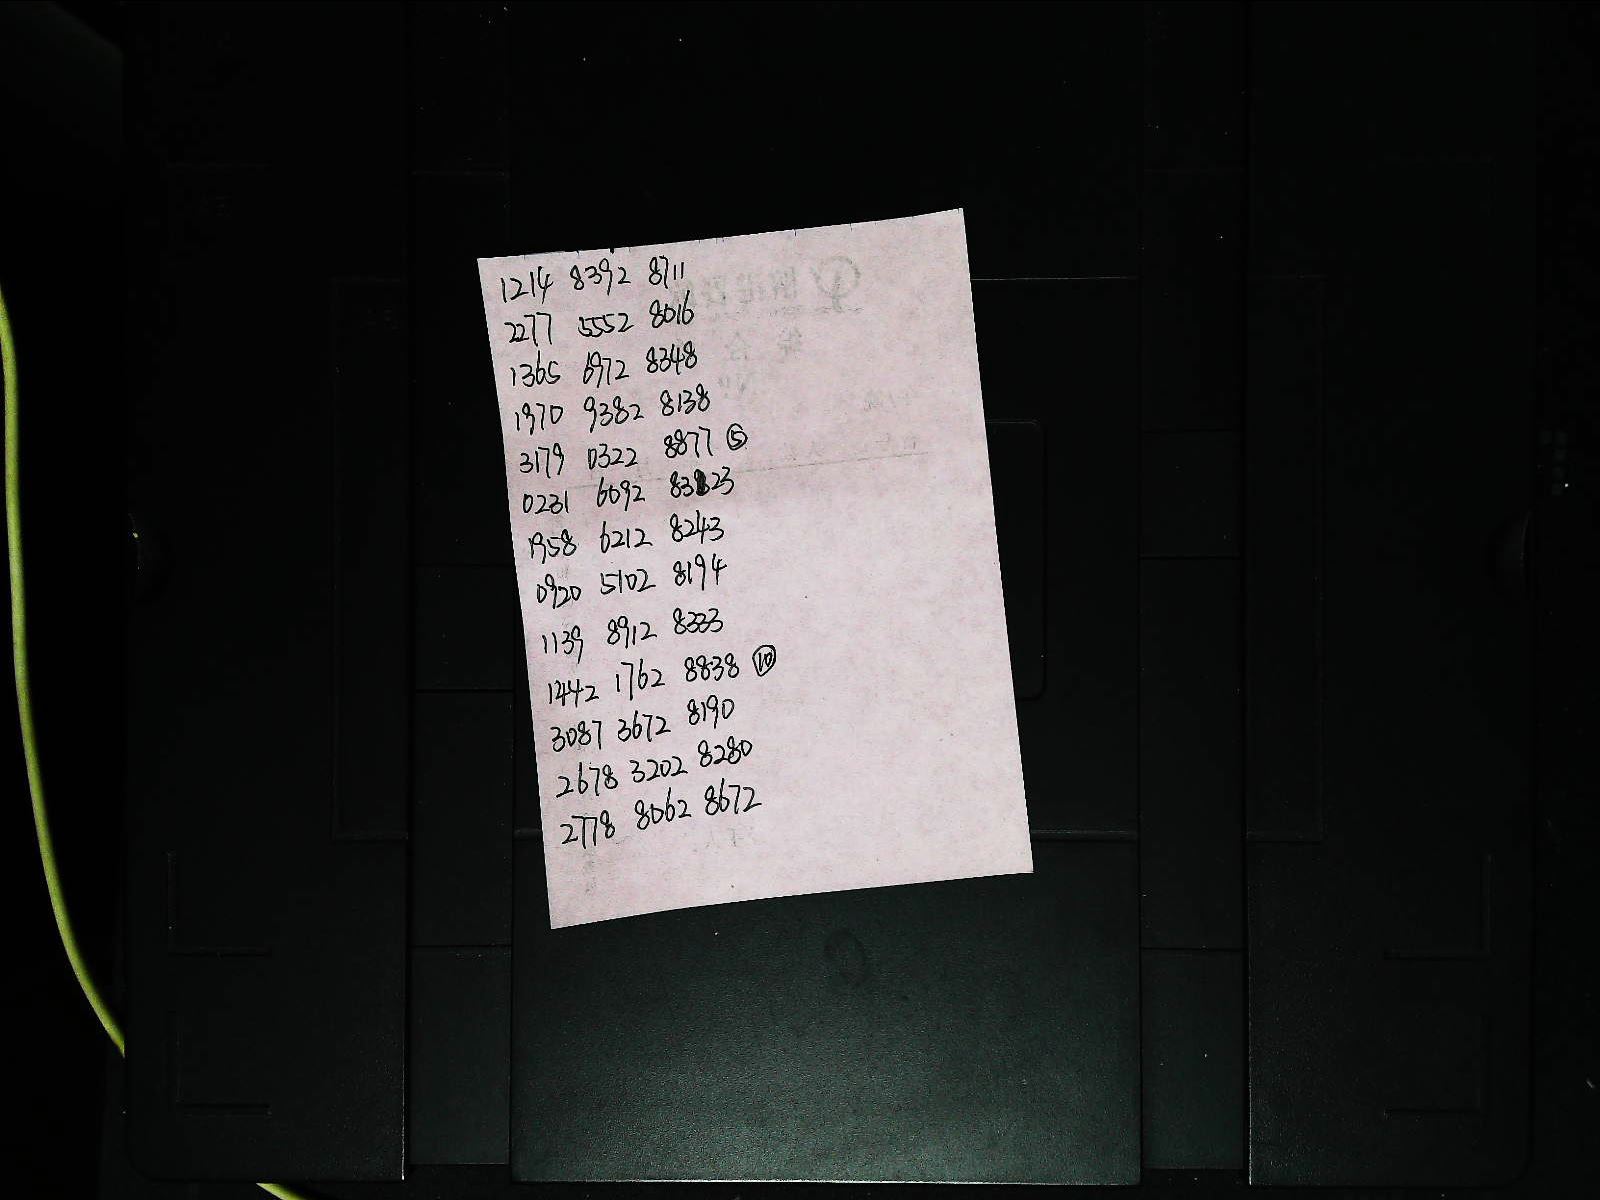 1214 8392 8711
2277 5552 8016
1365 6972 8348
1970 9382 8138
3179 0322 8877 ⑤
0231 6092 8323
1958 6212 8243
0920 5102 8194
1139 8912 8333
1442 1762 8838 ⑩
3087 3672 8190
2678 3202 8280
2778 8062 8672